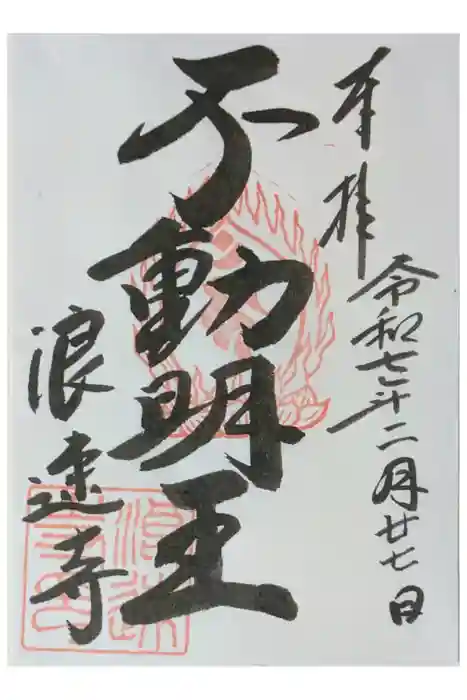 奉拝
令和七年二月廿七日
不動明王
浪速寺